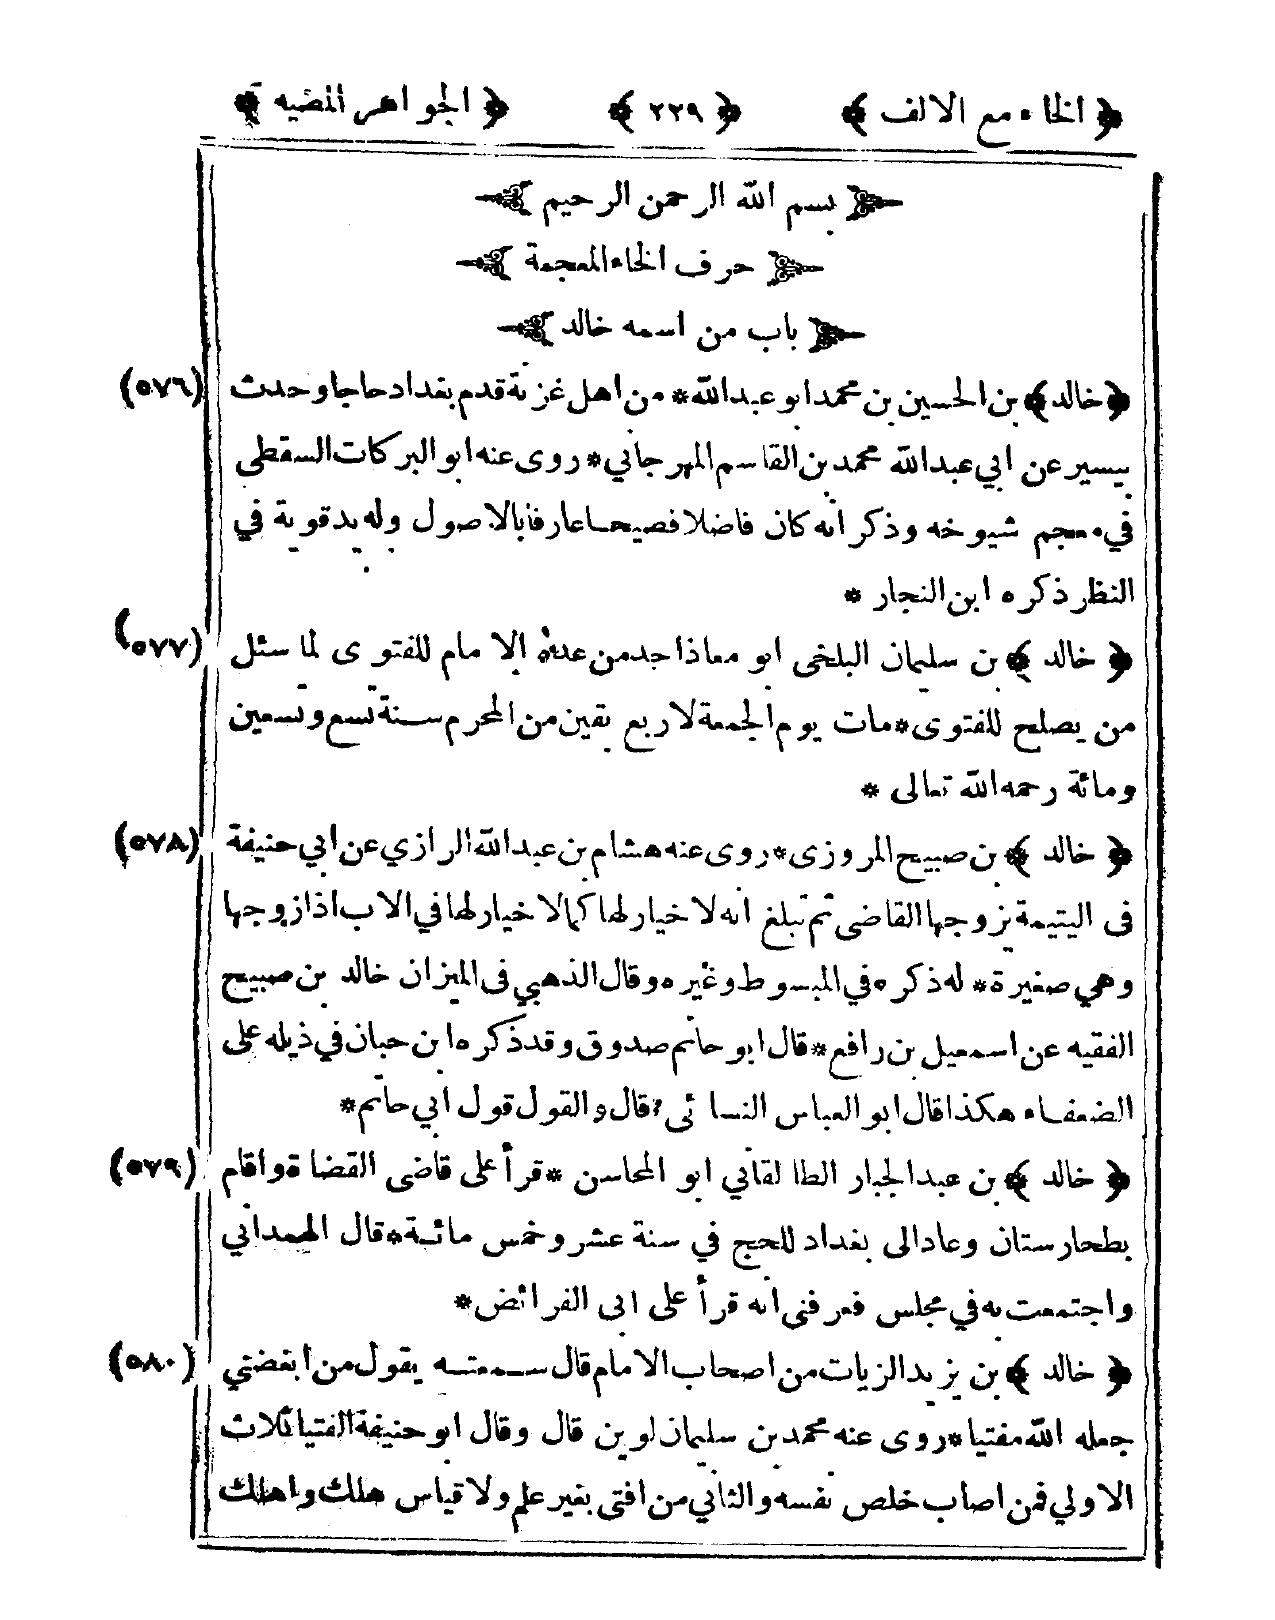 ﴿ الخاء مع الالف ﴾ ﴿ ٢٢٩ ﴾ ﴿ الجواهر المضيه ﴾
بسم الله الرحمن الرحيم
حرف الخاء المعجمة
باب من اسمه خالد
﴿ خالد ﴾ بن الحسين بن محمد ابو عبدالله * من اهل غزنة قدم بغداد حاجا وحدث (٥٧٦)
بيسير عن ابي عبدالله محمد بن القاسم المهرجاني * روى عنه ابو البركات السقطى
في معجم شيوخه وذكر انه كان فاضلا فصيحا عارفا بالاصول وله يد قوية في
النظر ذكره ابن النجار *
﴿ خالد ﴾ بن سليمان البلخى ابو معاذ احد من عده الامام للفتوى لما سئل (٥٧٧)
من يصلح للفتوى * مات يوم الجمعة لاربع بقين من المحرم سنة تسع وتسعين
ومائة رحمه الله تعالى *
﴿ خالد ﴾ بن صبيح المروزى * روى عنه هشام بن عبدالله الرازي عن ابي حنيفة (٥٧٨)
فى اليتيمة يزوجها القاضى ثم تبلغ انه لا خيار لها كما لا خيار لها في الاب اذا زوجها
وهي صغيرة * له ذكره في المبسوط وغيره وقال الذهبي فى الميزان خالد بن صبيح
الفقيه عن اسمعيل بن رافع * قال ابو حاتم صدوق وقد ذكره ابن حبان في ذيله على
الضعفاء هكذا قال ابو العباس النسائى * قال والقول قول ابي حاتم *
﴿ خالد ﴾ بن عبد الجبار الطالقاني ابو المحاسن * قرأ على قاضى القضاة واقام (٥٧٩)
بطحارستان وعاد الى بغداد للحج في سنة عشر وخمس مائة * قال الهمداني
واجتمعت به في مجلس فعرفنى انه قرأ على ابى الفرائض *
﴿ خالد ﴾ بن يزيد الزيات من اصحاب الامام قال سمعته يقول من ابغضني (٥٨٠)
جعله الله مفتيا * روى عنه محمد بن سليمان لوين قال وقال ابو حنيفة الفتيا ثلاث
الاولي فمن اصاب خلص نفسه والثاني من افتى بغير علم ولا قياس هلك واهلك